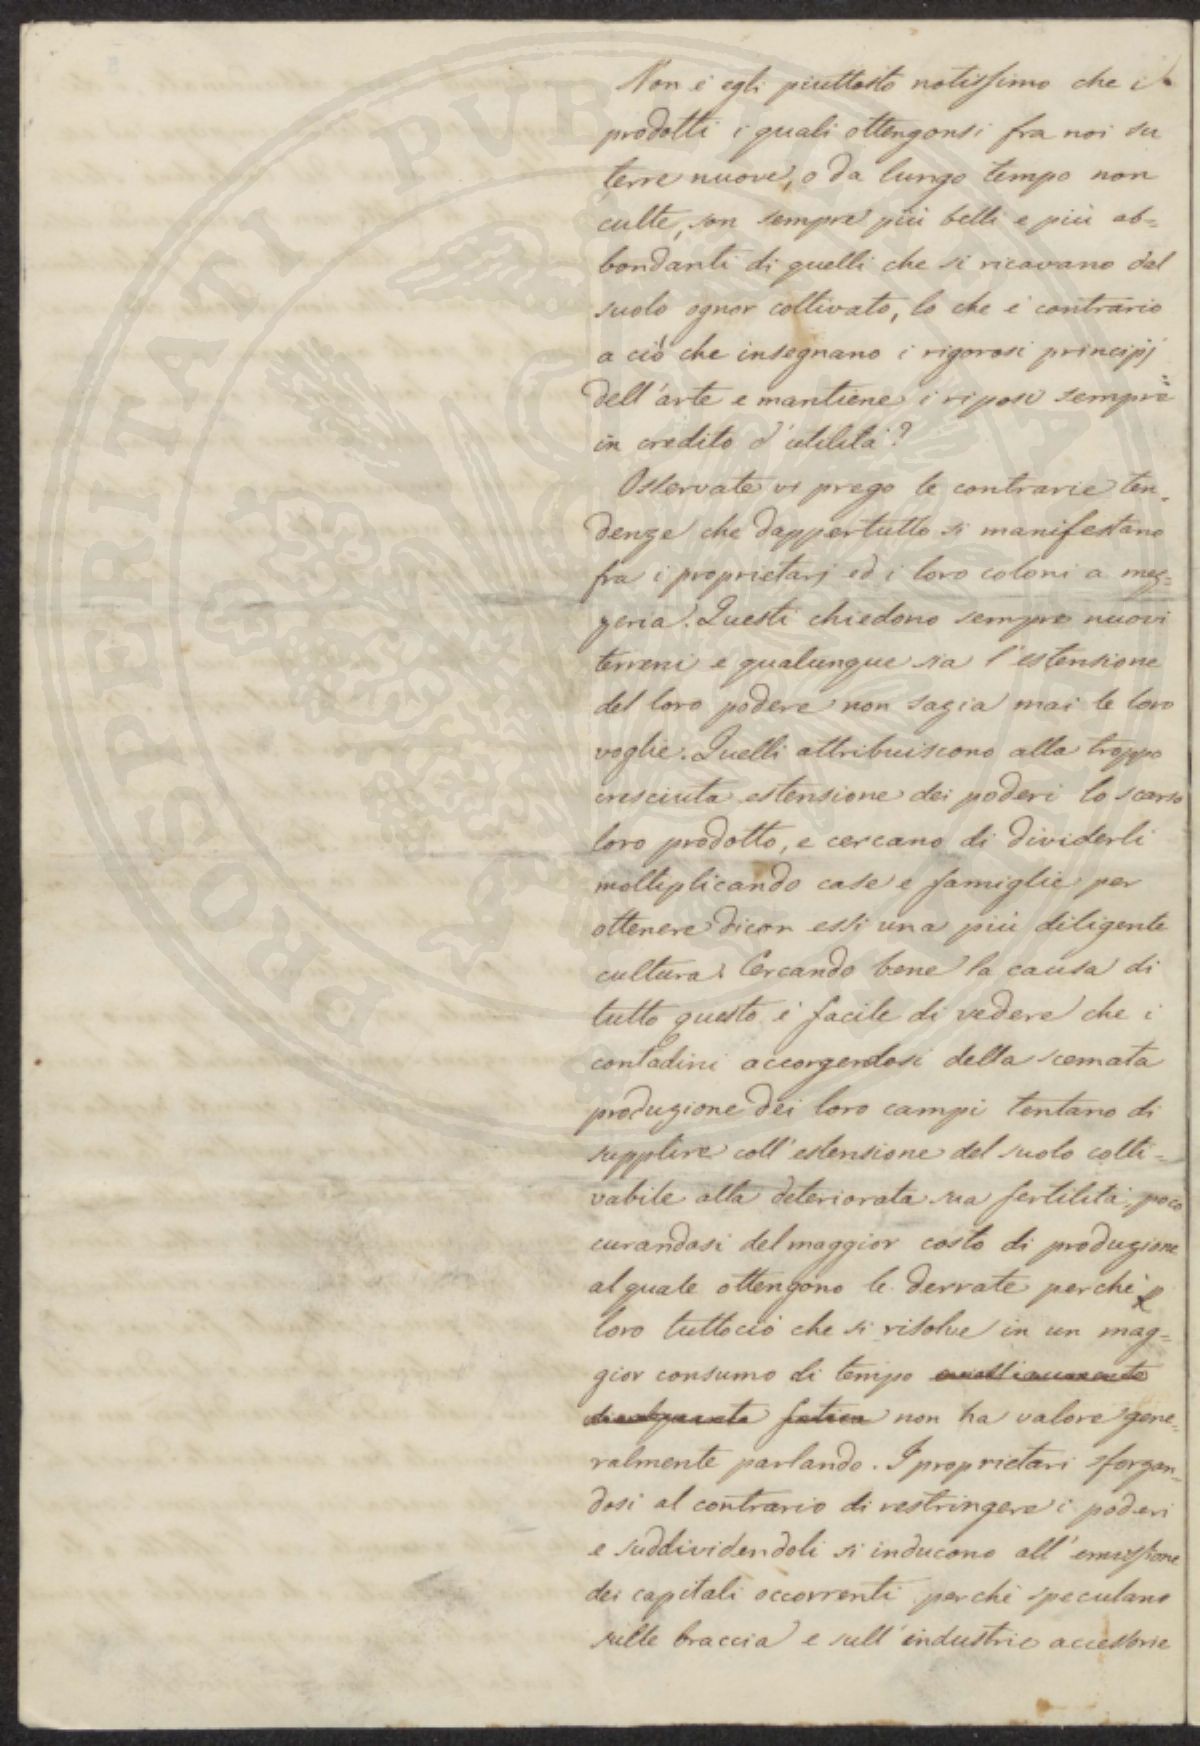 Non è egli piuttosto notissimo che i
prodotti i quali ottengonsi fra noi su
terre nuove, o da lungo tempo non
culte, son sempre più belli e più ab=
bondanti di quelli che si ricavano dal
suolo ognor coltivato, lo che è contrario
a ciò che insegnano i rigorosi principj
dell'arte e mantiene i riposi sempre
in credito d'utilità?
Osservate vi prego le contrarie ten=
denze che dappertutto si manifestano
fra i proprietarj ed i loro coloni a mez=
zeria. Questi chiedono sempre nuovi
terreni e qualunque sia l'estensione
del loro podere non sazia mai le loro
voglie. Quelli attribuiscono alla troppo
cresciuta estensione dei poderi lo scarso
loro prodotto, e cercano di dividerli
moltiplicando case e famiglie per
ottenere dicon essi una più diligente
cultura. Cercando bene la causa di
tutto questo è facile di vedere che i
contadini accorgendosi della scemata
produzione dei loro campi tentano di
supplire coll'estensione del suolo colti=
vabile alla deteriorata sua fertilità, poco
curandosi del maggior costo di produzione
al quale ottengono le derrate perchè p
loro tuttociò che si risolve in un mag=
gior consumo di tempo
fatica non ha valore gene=
ralmente parlando. I proprietari sforzan=
dosi al contrario di restringere i poderi
e suddividendoli si inducono all'emissione
dei capitali occorrenti perchè speculano
sulle braccia e sull'industrie accessorie
PROSPERITATI PUBLICAE